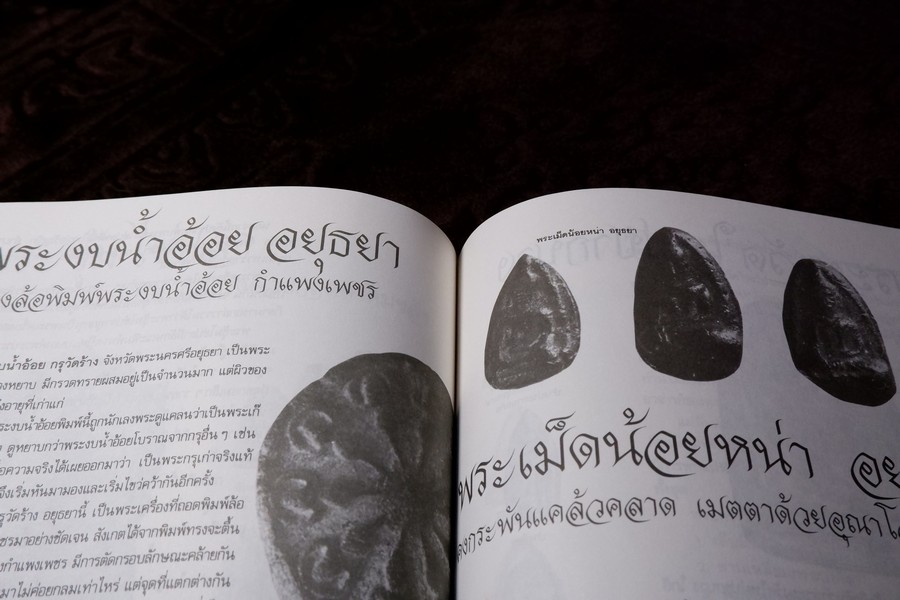 พระงบน้ำอ้อย อยุธยา
ล้อพิมพ์พระงบน้ำอ้อย กำแพงเพชร
น้ำอ้อย กรุวัดร้าง จังหวัดพระนครศรีอยุธยา เป็นพระ
หยาบ มีกรวดทรายผสมอยู่เป็นจำนวนมาก แต่ผิวของ
อายุที่เก่าแก่
งบน้ำอ้อยพิมพ์นี้ถูกนักเลงพระดูแคลนว่าเป็นพระเก๊
ดูหยาบกว่าพระงบน้ำอ้อยโบราณจากกรุอื่น ๆ เช่น
ความจริงได้เผยออกมาว่า เป็นพระกรุเก่าจริงแท้
จึงเริ่มหันมามองและเริ่มไขว่คว้ากันอีกครั้ง
วัดร้าง อยุธยานี้ เป็นพระเครื่องที่ถอดพิมพ์ล้อ
มาอย่างชัดเจน สังเกตได้จากพิมพ์ทรงจะตื้น
กำแพงเพชร มีการตัดกรอบลักษณะคล้ายกัน
มาไม่ค่อยกลมเท่าไหร่ แต่จุดที่แตกต่างกัน
พระเม็ดน้อยหน่า อยุธยา
พระเม็ดน้อยหน่า
กระพันแคล้วคลาด เมตตาด้วยอุณาโ